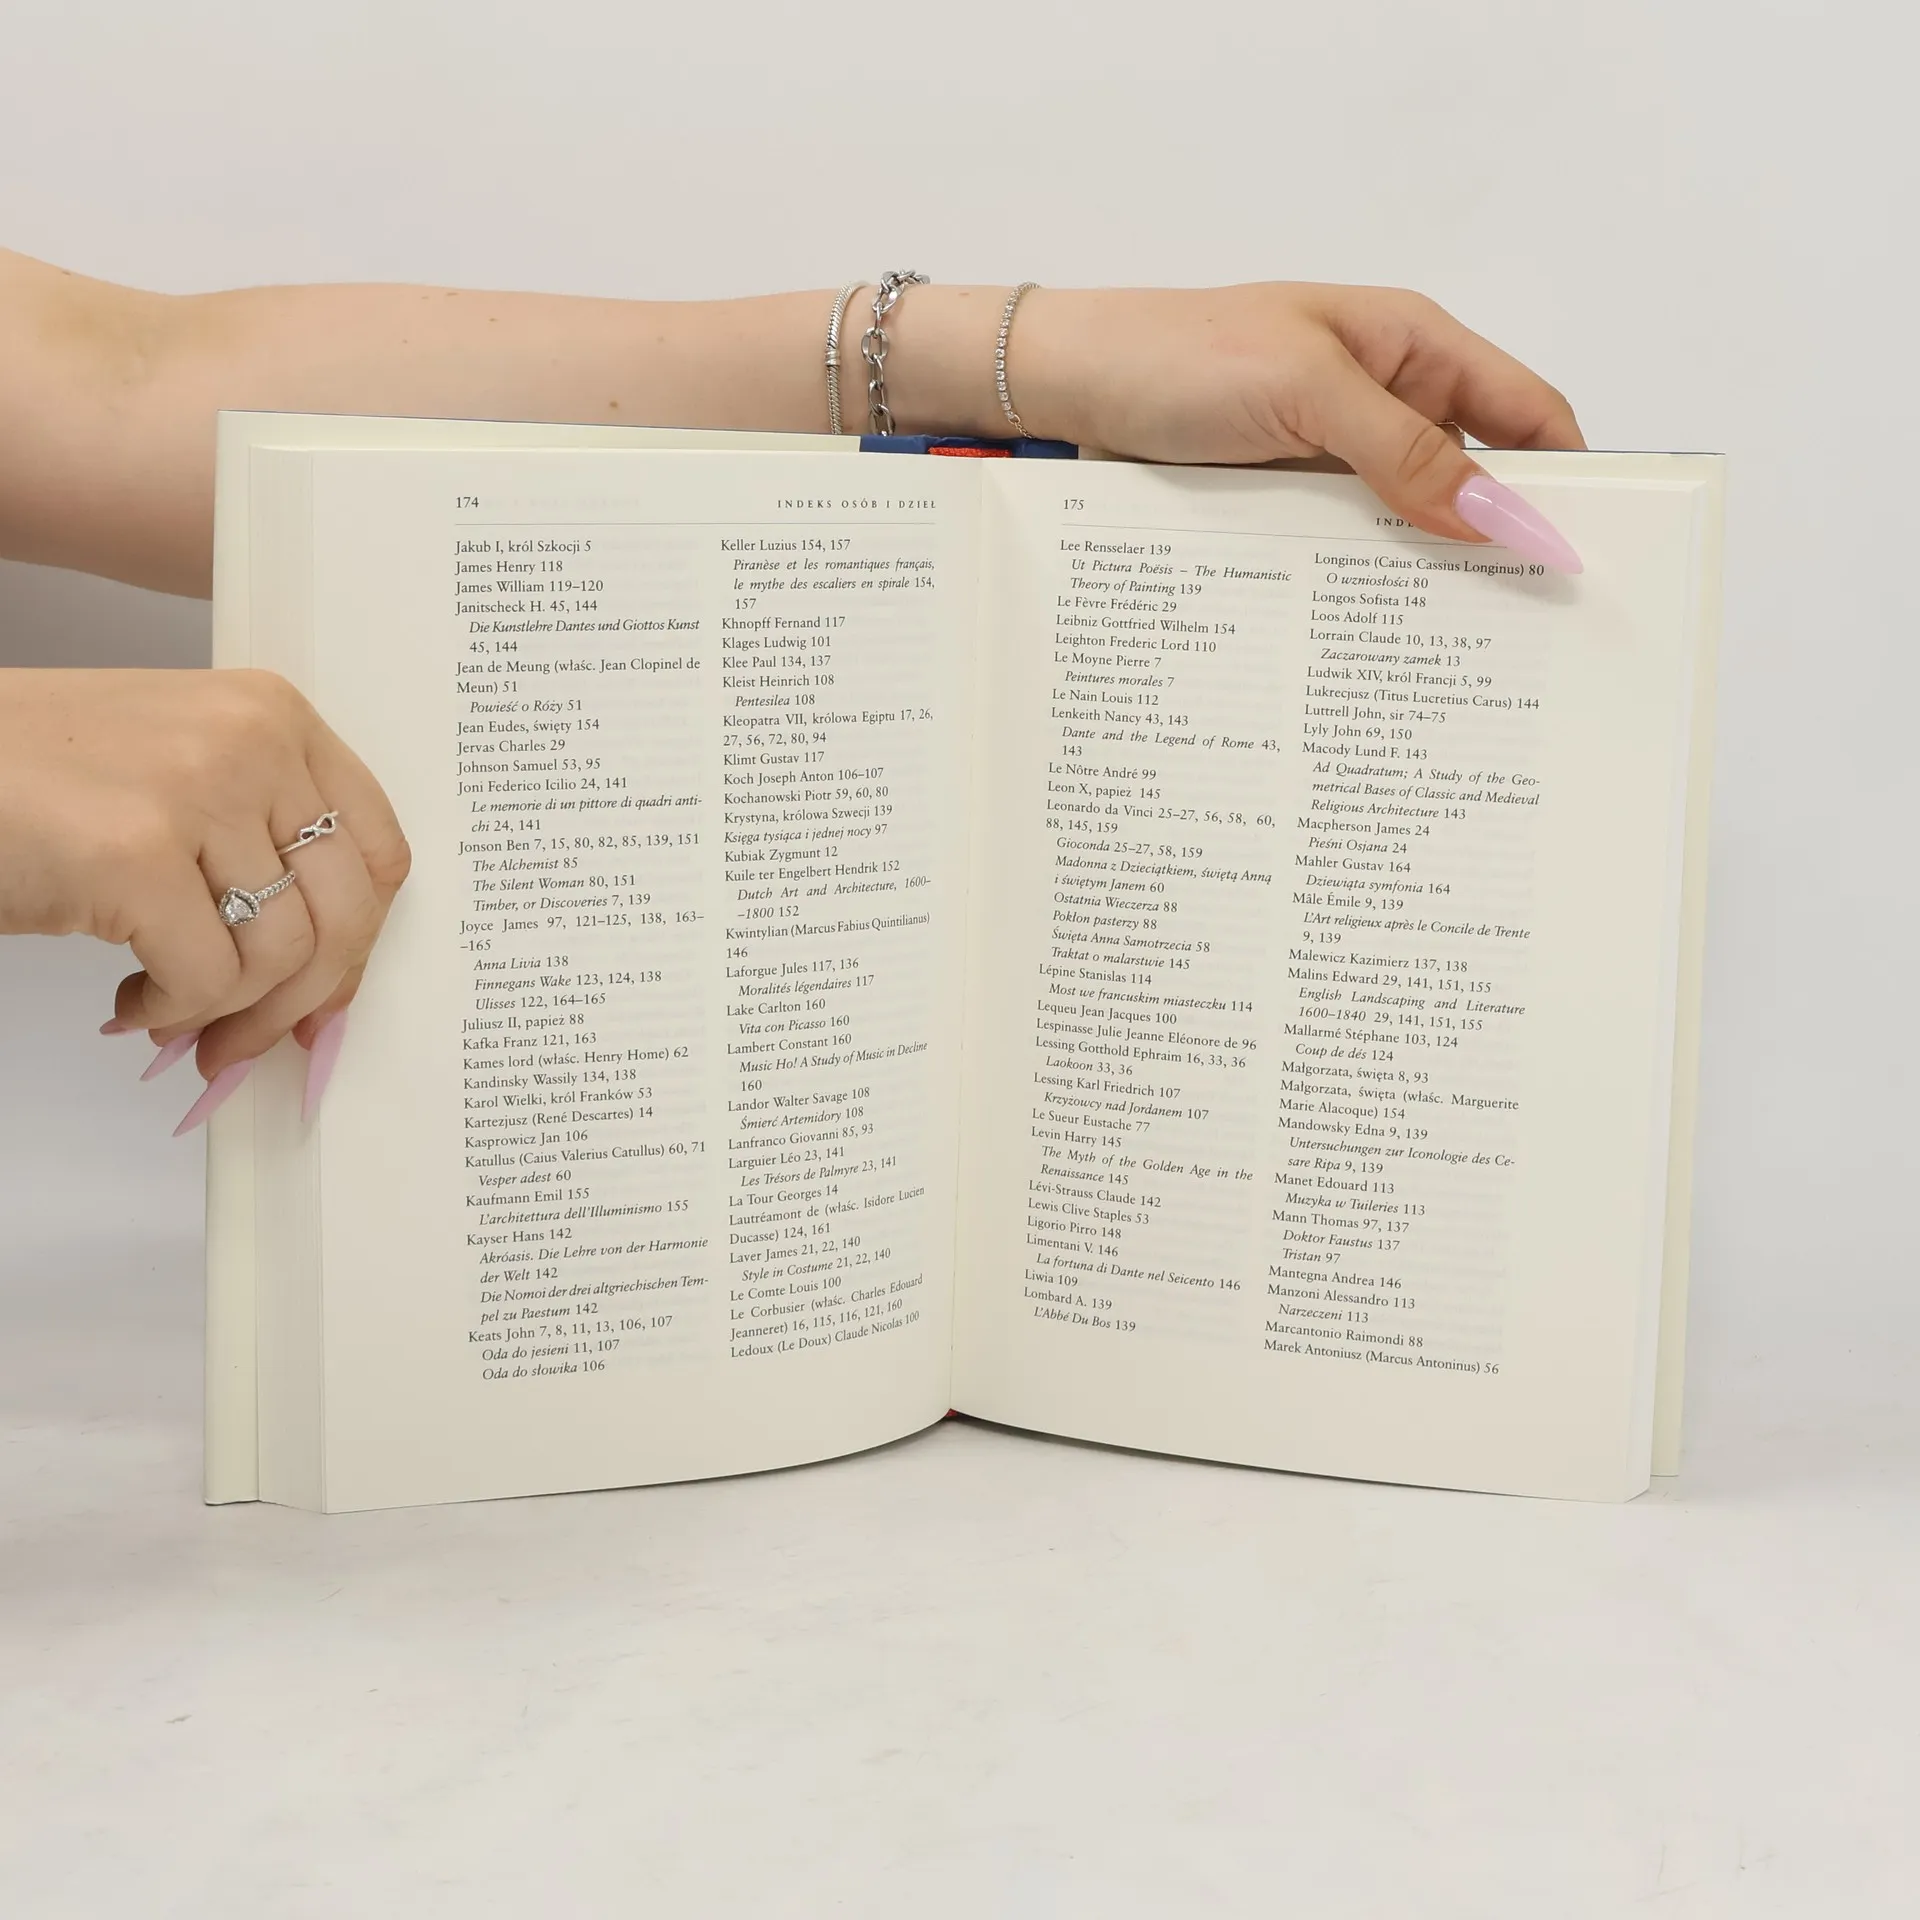 174
INDEKS OSÓB I DZIEŁ
Jakub I, król Szkocji 5
James Henry 118
James William 119–120
Janitscheck H. 45, 144
Die Kunstlehre Dantes und Giottos Kunst
45, 144
Jean de Meung (właśc. Jean Clopinel de
Meun) 51
Powieść o Róży 51
Jean Eudes, święty 154
Jervas Charles 29
Johnson Samuel 53, 95
Joni Federico Icilio 24, 141
Le memorie di un pittore di quadri anti-
chi 24, 141
Jonson Ben 7, 15, 80, 82, 85, 139, 151
The Alchemist 85
The Silent Woman 80, 151
Timber, or Discoveries 7, 139
Joyce James 97, 121–125, 138, 163–
–165
Anna Livia 138
Finnegans Wake 123, 124, 138
Ulisses 122, 164–165
Juliusz II, papież 88
Kafka Franz 121, 163
Kames lord (właśc. Henry Home) 62
Kandinsky Wassily 134, 138
Karol Wielki, król Franków 53
Kartezjusz (René Descartes) 14
Kasprowicz Jan 106
Katullus (Caius Valerius Catullus) 60, 71
Vesper adest 60
Kaufmann Emil 155
L'architettura dell'Illuminismo 155
Kayser Hans 142
Akróasis. Die Lehre von der Harmonie
der Welt 142
Die Nomoi der drei altgriechischen Tem-
pel zu Paestum 142
Keats John 7, 8, 11, 13, 106, 107
Oda do jesieni 11, 107
Oda do słowika 106
Keller Luzius 154, 157
Piranèse et les romantiques français,
le mythe des escaliers en spirale 154,
157
Khnopff Fernand 117
Klages Ludwig 101
Klee Paul 134, 137
Kleist Heinrich 108
Pentesilea 108
Kleopatra VII, królowa Egiptu 17, 26,
27, 56, 72, 80, 94
Klimt Gustav 117
Koch Joseph Anton 106–107
Kochanowski Piotr 59, 60, 80
Krystyna, królowa Szwecji 139
Księga tysiąca i jednej nocy 97
Kubiak Zygmunt 12
Kuile ter Engelbert Hendrik 152
Dutch Art and Architecture, 1600–
–1800 152
Kwintylian (Marcus Fabius Quintilianus)
146
Laforgue Jules 117, 136
Moralités légendaires 117
Lake Carlton 160
Vita con Picasso 160
Lambert Constant 160
Music Ho! A Study of Music in Decline
160
Landor Walter Savage 108
Śmierć Artemidory 108
Lanfranco Giovanni 85, 93
Larguier Léo 23, 141
Les Trésors de Palmyre 23, 141
La Tour Georges 14
Lautréamont de (właśc. Isidore Lucien
Ducasse) 124, 161
Laver James 21, 22, 140
Style in Costume 21, 22, 140
Le Comte Louis 100
Le Corbusier (właśc. Charles Edouard
Jeanneret) 16, 115, 116, 121, 160
Ledoux (Le Doux) Claude Nicolas 100
175
INDE
Lee Rensselaer 139
Ut Pictura Poësis – The Humanistic
Theory of Painting 139
Le Fèvre Frédéric 29
Leibniz Gottfried Wilhelm 154
Leighton Frederic Lord 110
Le Moyne Pierre 7
Peintures morales 7
Le Nain Louis 112
Lenkeith Nancy 43, 143
Dante and the Legend of Rome 43,
143
Le Nôtre André 99
Leon X, papież 145
Leonardo da Vinci 25–27, 56, 58, 60,
88, 145, 159
Gioconda 25–27, 58, 159
Madonna z Dzieciątkiem, świętą Anną
i świętym Janem 60
Ostatnia Wieczerza 88
Pokłon pasterzy 88
Święta Anna Samotrzecia 58
Traktat o malarstwie 145
Lépine Stanislas 114
Most we francuskim miasteczku 114
Lequeu Jean Jacques 100
Lespinasse Julie Jeanne Eléonore de 96
Lessing Gotthold Ephraim 16, 33, 36
Laokoon 33, 36
Lessing Karl Friedrich 107
Krzyżowcy nad Jordanem 107
Le Sueur Eustache 77
Levin Harry 145
The Myth of the Golden Age in the
Renaissance 145
Lévi-Strauss Claude 142
Lewis Clive Staples 53
Ligorio Pirro 148
Limentani V. 146
La fortuna di Dante nel Seicento 146
Liwia 109
Lombard A. 139
L'Abbé Du Bos 139
Longinos (Caius Cassius Longinus) 80
O wzniosłości 80
Longos Sofista 148
Loos Adolf 115
Lorrain Claude 10, 13, 38, 97
Zaczarowany zamek 13
Ludwik XIV, król Francji 5, 99
Lukrecjusz (Titus Lucretius Carus) 144
Luttrell John, sir 74–75
Lyly John 69, 150
Macody Lund F. 143
Ad Quadratum; A Study of the Geo-
metrical Bases of Classic and Medieval
Religious Architecture 143
Macpherson James 24
Pieśni Osjana 24
Mahler Gustav 164
Dziewiąta symfonia 164
Mâle Émile 9, 139
L'Art religieux après le Concile de Trente
9, 139
Malewicz Kazimierz 137, 138
Malins Edward 29, 141, 151, 155
English Landscaping and Literature
1600–1840 29, 141, 151, 155
Mallarmé Stéphane 103, 124
Coup de dés 124
Małgorzata, święta 8, 93
Małgorzata, święta (właśc. Marguerite
Marie Alacoque) 154
Mandowsky Edna 9, 139
Untersuchungen zur Iconologie des Ce-
sare Ripa 9, 139
Manet Edouard 113
Muzyka w Tuileries 113
Mann Thomas 97, 137
Doktor Faustus 137
Tristan 97
Mantegna Andrea 146
Manzoni Alessandro 113
Narzeczeni 113
Marcantonio Raimondi 88
Marek Antoniusz (Marcus Antoninus) 56